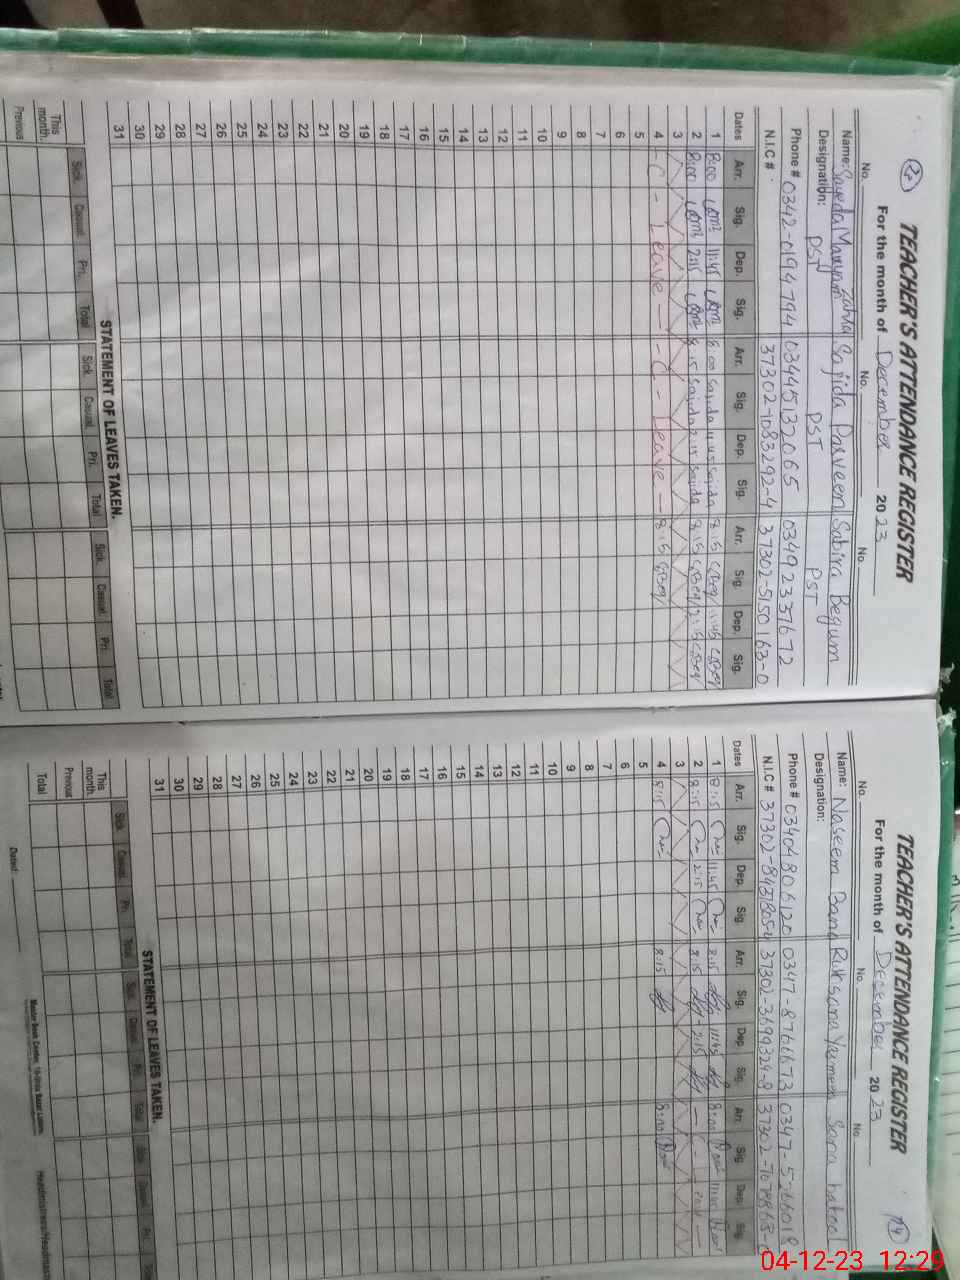 22
TEACHER'S ATTENDANCE REGISTER
For the month of December 2023
No. No. No.
Name: Sayeda Maryam Zahra Sajida Parveen Sabira Begum
Designation: PST PST PST
Phone # 0342-0194794 03445132065 03492337672
N.I.C # 37302-1083792-4 37302-5150163-0
Dates Arr. Sig. Dep. Sig. Arr. Sig. Dep. Sig. Arr. Sig. Dep. Sig.
1 8:00 11:45 8:00 Sajida 11:45 Sajida 8:15 SBeg 11:45 SBeg
2 8:00 2:15 8:15 Sajida 2:15 Sajida 8:15 SBeg 2:15 SBeg
3
4 - C - Leave - - C - Leave - 8:15 SBeg
5
6
7
8
9
10
11
12
13
14
15
16
17
18
19
20
21
22
23
24
25
26
27
28
29
30
31
STATEMENT OF LEAVES TAKEN.
Sick. Casual. Pri. Total Sick. Casual. Pri. Total Sick. Casual. Pri. Total
This month
Previous
TEACHER'S ATTENDANCE REGISTER
124
For the month of December 2023
No. No. No.
Name: Naseem Bano Ruksana Yasmeen Sana
Designation:
Phone # 03404806120 0347-8766673
N.I.C # 37302-
Dates Arr. Sig. Dep. Sig. Arr. Sig. Dep. Sig. Arr. Sig. Dep. Sig.
1 8:15 11:45 8:15 11:45 8:00
2 8:15 2:15 8:15 2:15 - C -
3
4 8:15 8:15 8:00
5
6
7
8
9
10
11
12
13
14
15
16
17
18
19
20
21
22
23
24
25
26
27
28
29
30
31
STATEMENT OF LEAVES TAKEN.
Sick. Casual. Pri. Total Sick. Casual. Pri. Total
This month
Previous
Total
Dated:
04-12-23 12:29